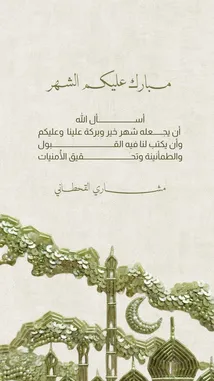 مبارك عليكم الشهر
أســـــأل الله
أن يجـــعله شهر خير وبركة علينا وعليكم
وأن يكتب لنا فيه القـــــــــبول
والطمأنينة وتحـــــقيق الأمنيات
مشاري القحطاني